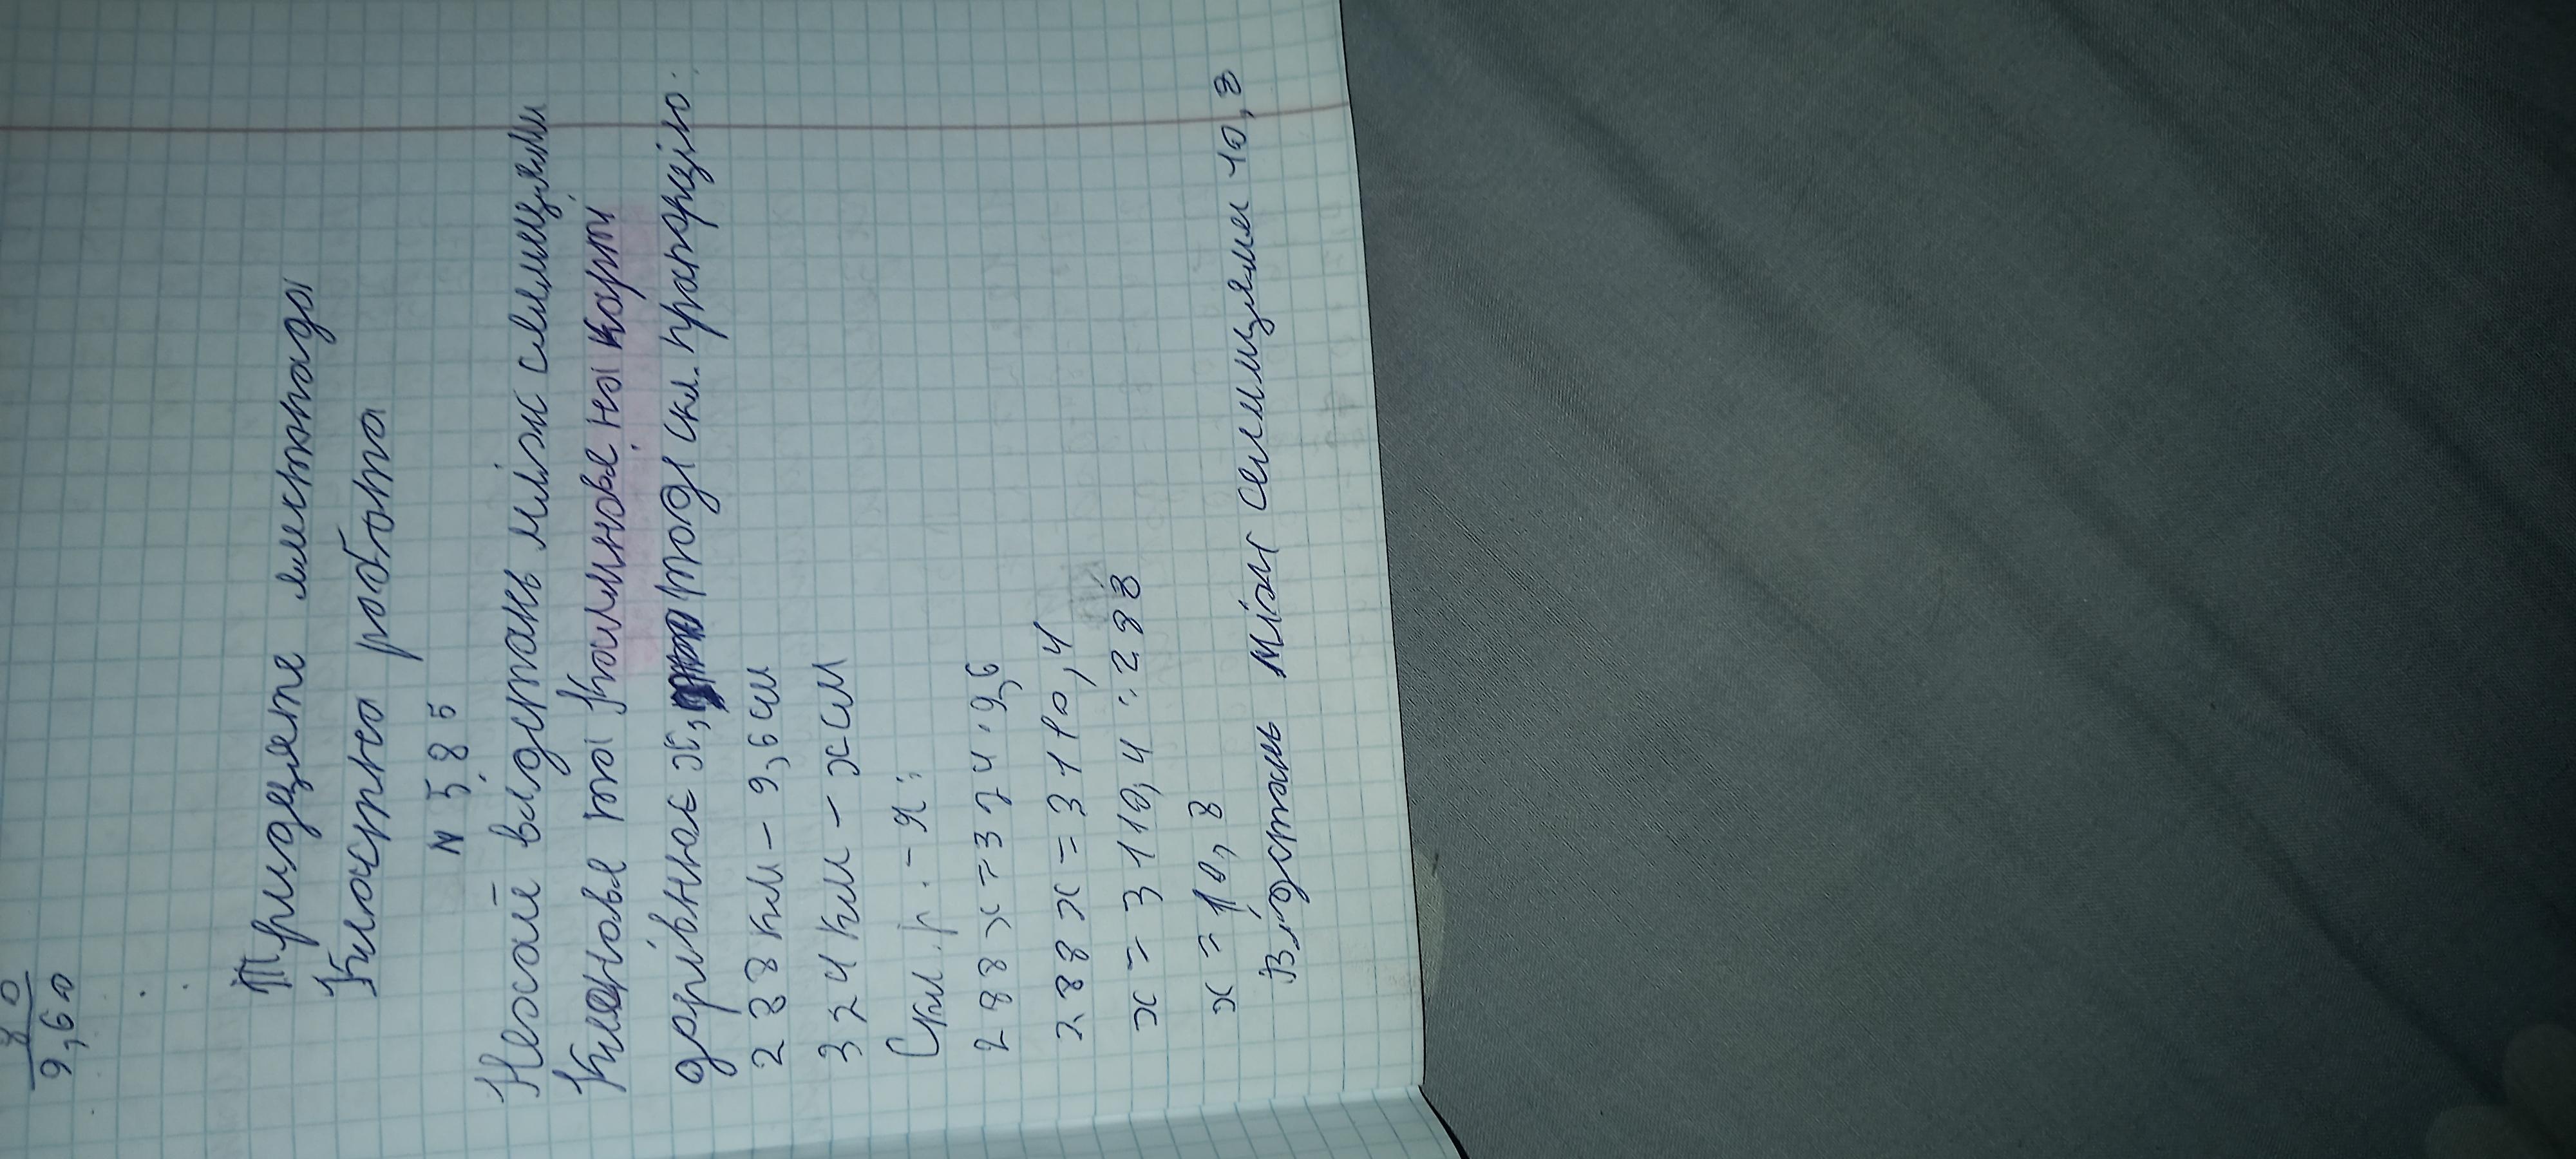 80
9,60
Тридцяте листопада
Класна робота
N 585
Нехай відстань між селищами
Кленове та Калинове на карті
дорівнює х, тоді скл. пропорцію.
288 км – 9,6 см
324 км – х см
Скл. р. – я:
288 х = 324 · 9,6
288 х = 3110,4
х = 3110,4 : 288
х = 10,8
Відстань між селищами 10,8